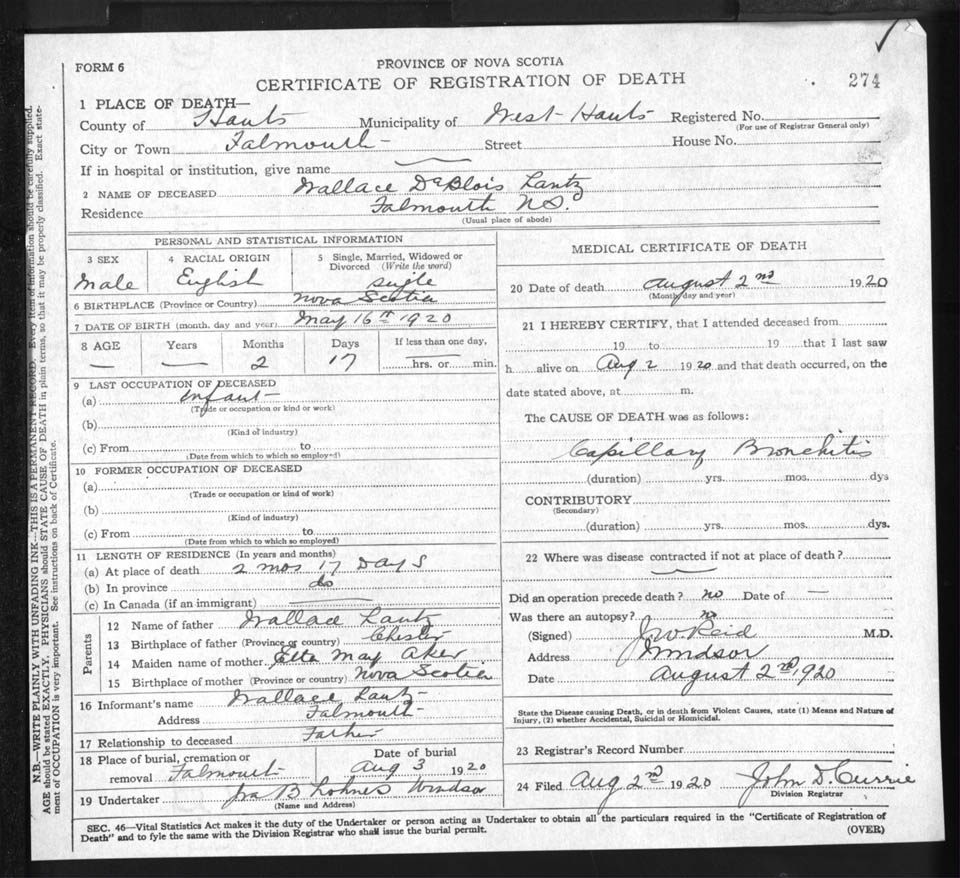 PROVINCE OF NOVA SCOTIA
FORM 6
CERTIFICATE OF REGISTRATION OF DEATH
274
1 PLACE OF DEATH—
County of Hants Municipality of West Hants Registered No.
(For use of Registrar General only)
City or Town Falmouth Street House No.
If in hospital or institution, give name
2 NAME OF DECEASED Wallace DeBlois Lantz
Residence Falmouth N.S.
(Usual place of abode)
PERSONAL AND STATISTICAL INFORMATION
3 SEX
Male
4 RACIAL ORIGIN
English
5 Single, Married, Widowed or
Divorced (Write the word)
single
6 BIRTHPLACE (Province or Country) Nova Scotia
7 DATE OF BIRTH (month, day and year) May 16th 1920
8 AGE Years Months Days If less than one day,
— — 2 17 hrs. or min.
9 LAST OCCUPATION OF DECEASED
(a) Infant
(Trade or occupation or kind or work)
(b)
(Kind of industry)
(c) From to
(Date from which to which so employed)
10 FORMER OCCUPATION OF DECEASED
(a)
(Trade or occupation or kind of work)
(b)
(Kind of industry)
(c) From to
(Date from which to which so employed)
11 LENGTH OF RESIDENCE (In years and months)
(a) At place of death 2 mos 17 Days
(b) In province do
(c) In Canada (if an immigrant)
Parents
12 Name of father Wallace Lantz
13 Birthplace of father (Province or country) Chester
14 Maiden name of mother Etta May Aker
15 Birthplace of mother (Province or country) Nova Scotia
16 Informant's name Wallace Lantz
Address Falmouth
17 Relationship to deceased Father
18 Place of burial, cremation or Date of burial
removal Falmouth Aug 3 1920
19 Undertaker Ira B Lohnes Windsor
(Name and Address)
MEDICAL CERTIFICATE OF DEATH
20 Date of death August 2nd 1920
(Month, day and year)
21 I HEREBY CERTIFY, that I attended deceased from
19 to 19 that I last saw
h alive on Aug 2 1920 and that death occurred, on the
date stated above, at m.
The CAUSE OF DEATH was as follows:
Capillary Bronchitis
(duration) yrs. mos. dys
CONTRIBUTORY
(Secondary)
(duration) yrs. mos. dys.
22 Where was disease contracted if not at place of death?
Did an operation precede death? no Date of —
Was there an autopsy? no
(Signed) J W Reid M.D.
Address Windsor
Date August 2nd 1920
State the Disease causing Death, or in death from Violent Causes, state (1) Means and Nature of
Injury, (2) whether Accidental, Suicidal or Homicidal.
23 Registrar's Record Number
24 Filed Aug 2nd 1920 John D. Currie
Division Registrar
SEC. 46—Vital Statistics Act makes it the duty of the Undertaker or person acting as Undertaker to obtain all the particulars required in the "Certificate of Registration of
Death" and to fyle the same with the Division Registrar who shall issue the burial permit.
(OVER)
N.B.—WRITE PLAINLY WITH UNFADING INK—THIS IS A PERMANENT RECORD. Every item of information should be carefully supplied.
AGE should be stated EXACTLY. PHYSICIANS should STATE CAUSE OF DEATH in plain terms, so that it may be properly classified. Exact state-
ment of OCCUPATION is very important. See instructions on back of Certificate.